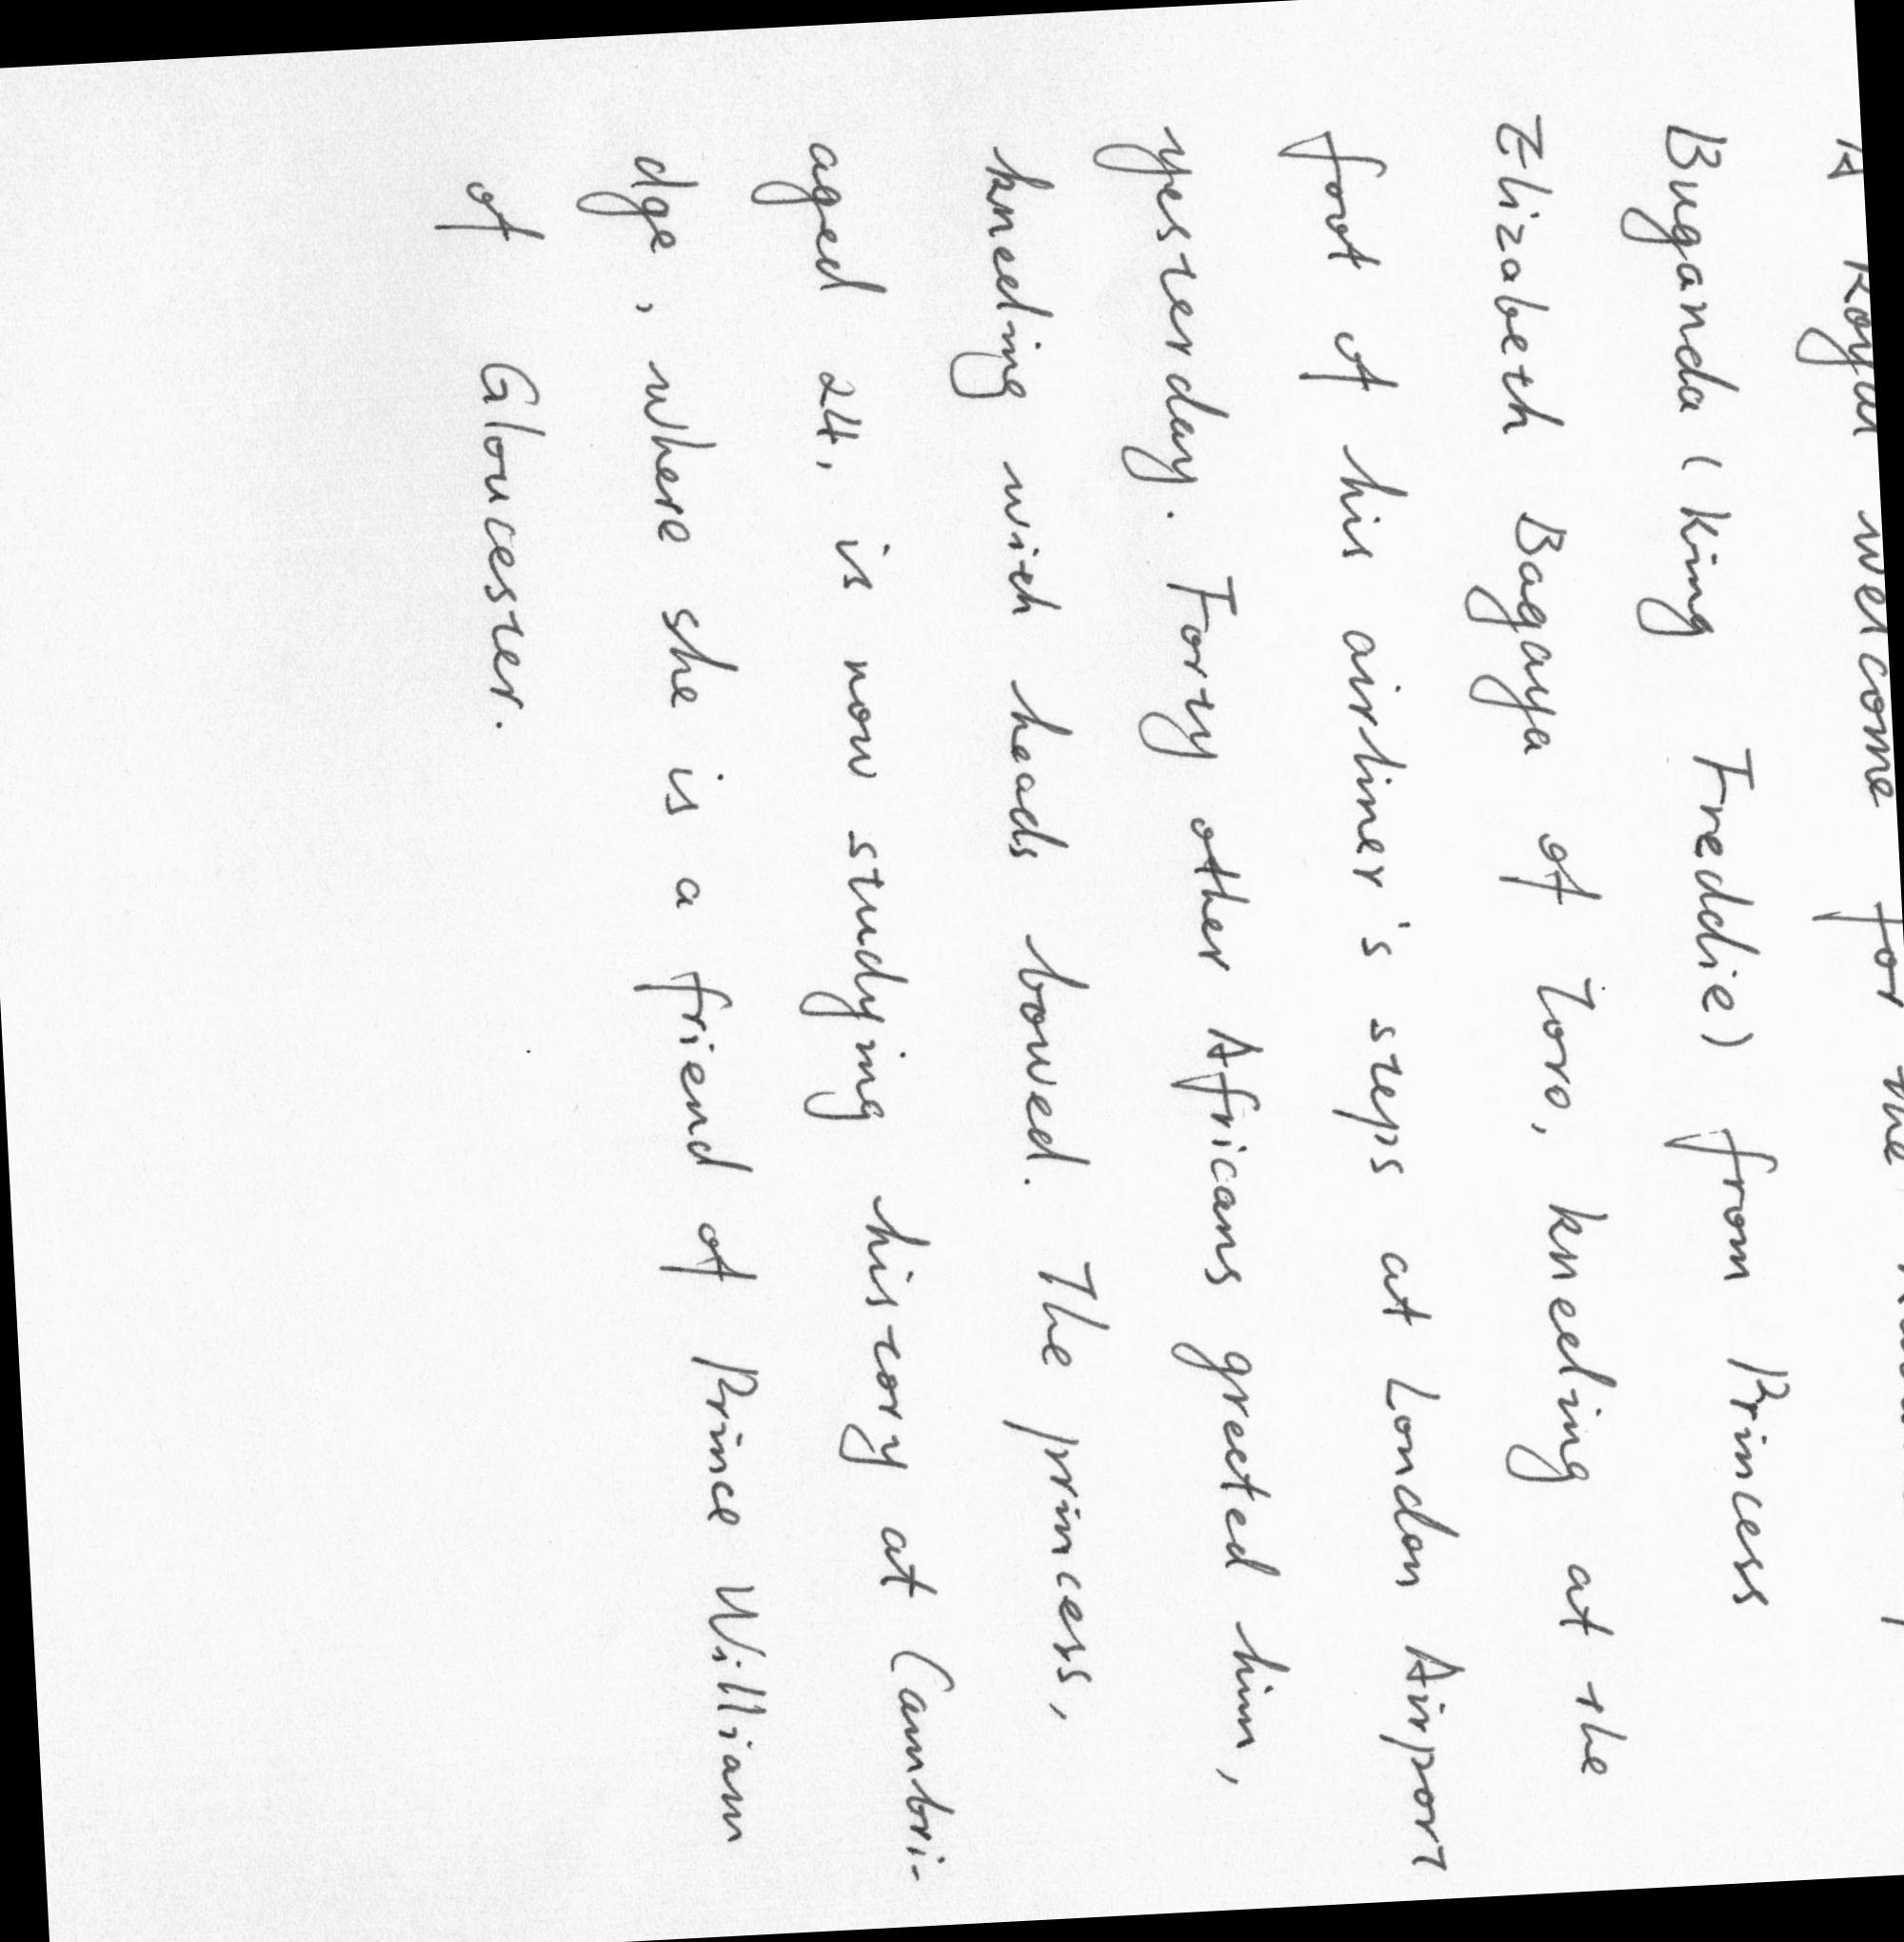 A Royal welcome for the
Buganda (King Freddie) from Princess
Elizabeth Bagaya of Toro, kneeling at the
foot of his airliner's steps at London Airport
yesterday. Forty other Africans greeted him,
kneeling with heads bowed. The princess,
aged 24, is now studying history at Cambri-
dge, where she is a friend of Prince William
of Gloucester.